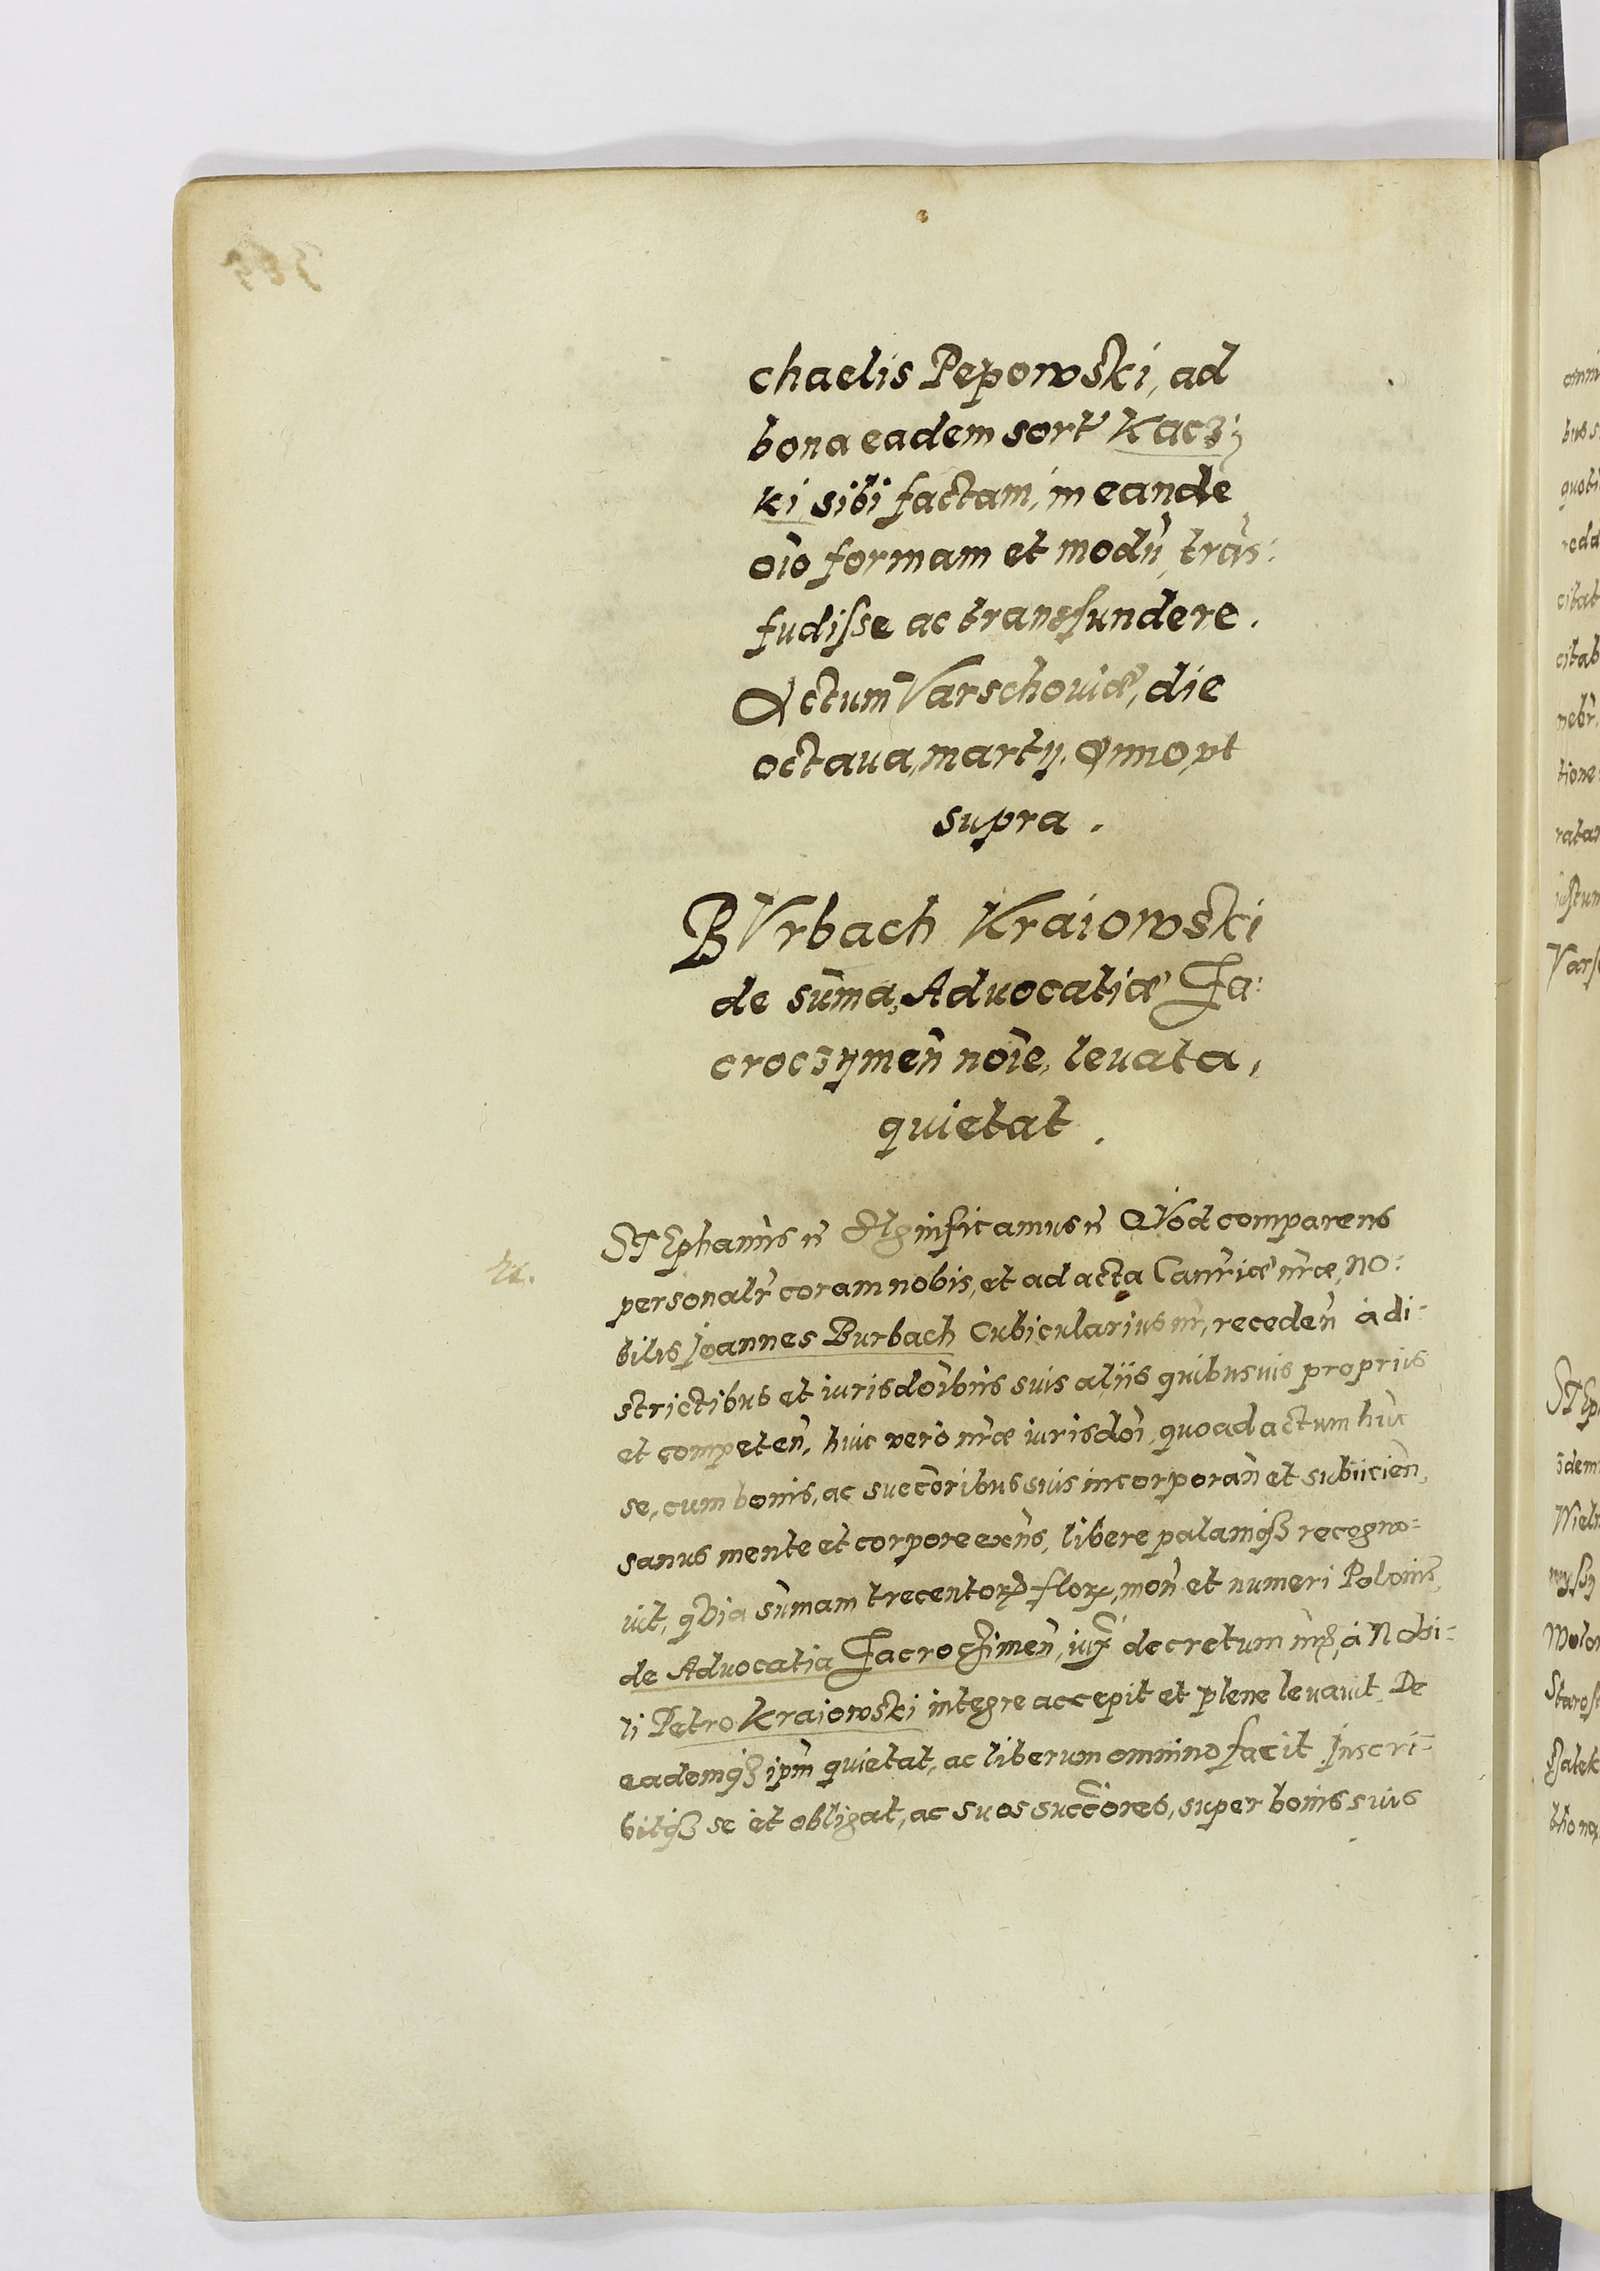 chaelis Pepowski, ad
bona eadem sort' Kacz:
ki sibi factam, in eande
oīo formam et modū, trās:
fudisse ac transfundere.
Actum Varschouiæ, die
octaua, martij. Anno vt
supra.
BVrbach Kraiowski
de sūma, Aduocatiæ Za:
croczymeñ noīe, leuata,
quietat.
STEphanus ñ Significamus ñ QVod comparens
personalr̃ coram nobis, et ad acta Canr̃iæ nr̃æ, no:
bilis Joannes Burbach Cubicularius nr̃, recedeñ à di:
strictibus et iurisdoībus suis aliis quibusuis propriis
et competeñ, huic verò nr̃æ iurisdoī, quoad actum hūc
se, cum bonis, ac succōribus suis incorporañ et subiicieñ,
sanus mente et corpore exñs, libere palamqꝫ recogno:
uit, qVia sūmam trecentorꝝ florꝝ, moñ et numeri Poloniꝭ,
de Aduocatia Zacroczimeñ, iux̃ decretum nr̃ꝫ, à Nobi:
li Petro Kraiowski integre accepit et plene leuauit. De
eademqꝫ ipm̃ quietat, ac liberum omnino facit Inscri:
bitqꝫ se et obligat, ac suos succōres, super bonis suis
365
omni
bus s
quoti
redd
citat
citab
nebr.
tione
ratar
iustum
Vars
STEp
idem
Wieln
wyssy
Wolo
Starost
Zalek
thona